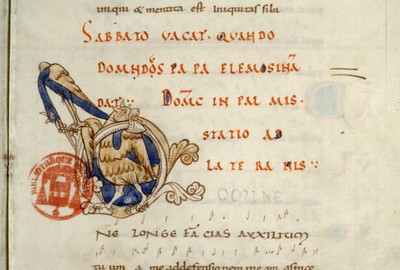 iniqui & mentita est iniquitas sibi
SABBATO VACAT. QUANDO
DOMNUS PAPA ELEMOSINA
DAT. DOMC IN PALMIS.
STATIO AD
LATERANIS:
DOMINE
NE LONGE FACIAS AUXILIUM
tuum a me ad defensionem meam aspice